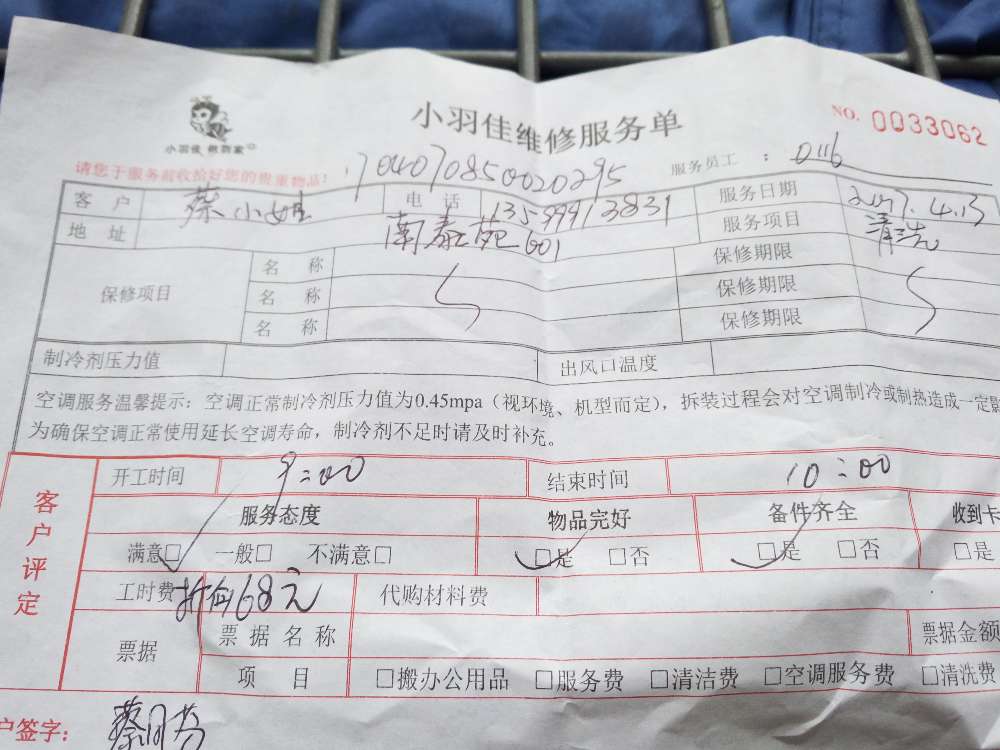 小羽佳维修服务单
NO. 0033062
小羽佳
请您于服务前收拾好您的贵重物品!
1704070850020295
服务员工 : 0116
客户 蔡小姐 电话 13599913831 服务日期 2017.4.13
地址 南泰苑601 服务项目 清洗
保修项目 名称 保修期限
名称 保修期限
名称 保修期限
制冷剂压力值 出风口温度
空调服务温馨提示:空调正常制冷剂压力值为0.45mpa(视环境、机型而定),拆装过程会对空调制冷或制热造成一定影
为确保空调正常使用延长空调寿命,制冷剂不足时请及时补充。
客户评定
开工时间 9:00 结束时间 10:00
服务态度 物品完好 备件齐全 收到卡
满意□ 一般□ 不满意□ □是 □否 □是 □否 □是
工时费 68元 代购材料费
票据 票据名称 票据金额
项目 □搬办公用品 □服务费 □清洁费 □空调服务费 □清洗费
户签字: 蔡月芬